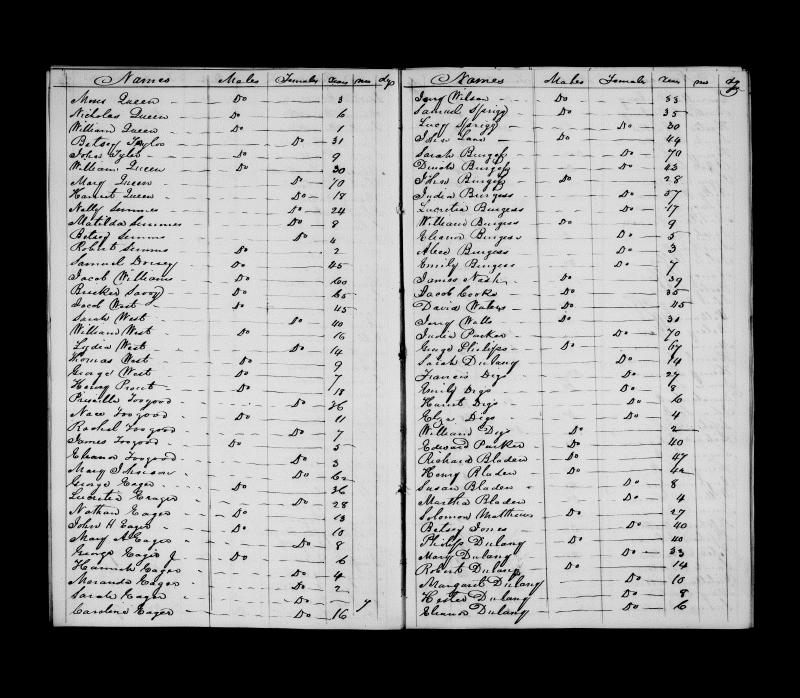 Names Males Females Years ms Dys
Moses Queen Do 3
Nicholas Queen Do 6
William Queen Do 1
Betsey Do 31
John Tyler Do 9
William Queen Do 30
Mary Queen Do 70
Harriet Queen Do 18
Nelly Simmes Do 24
Matilda Simmes Do 8
Betsey Simms Do 4
Robert Simms Do 2
Samuel Dorsey Do 45
Jacob Williams Do 60
Savoy Do 65
Jacob West Do 45
Sarah West Do 40
William West Do 16
Lydia West Do 14
Thomas West Do 9
George West Do 7
Henry Prout Do 18
Priscilla Toogood Do 36
Nace Toogood Do 11
Rachel Toogood Do 7
James Toogood Do 5
Toogood Do 3
Mary Johnson Do 62
George Eager Do 36
Lucretia Eager Do 28
Nathan Eager Do 13
John H Eager Do 10
Mary A Eager Do 8
George Eager J Do 6
Hannah Eager Do 4
Meranda Eager Do 2
Sarah Eager Do 7
Caroline Eager Do 16
Names Males Females Years ms Dys
Wilson Do 33
Samuel Sprigg Do 35
Lucy Sprigg Do 30
John Lane Do 44
Sarah Burgess Do 70
Dinah Burgess Do 43
John Burgess Do 28
Judia Burgess Do 57
Lucretia Burgess Do 17
William Burgess Do 9
Eleanor Burgess Do 5
Alice Burgess Do 3
Emily Burgess Do 7
James Nash Do 39
Jacob Cooke Do 35
David Waters Do 45
Jerry Watts Do 31
Judia Parker Do 70
George Philips Do 67
Sarah Dulany Do 14
Francis Digs Do 27
Emily Digs Do 8
Harriet Digs Do 6
Eliza Digs Do 4
William Digs Do 2
Edward Parker Do 40
Richard Bladen Do 47
Henry Bladen Do 42
Susan Bladen Do 8
Martha Bladen Do 4
Solomon Matthews Do 27
Betsey Jones Do 40
Philip Dulany Do 40
Mary Dulany Do 33
Robert Dulany Do 14
Margaret Dulany Do 10
Hester Dulany Do 8
Eleanor Dulany Do 6